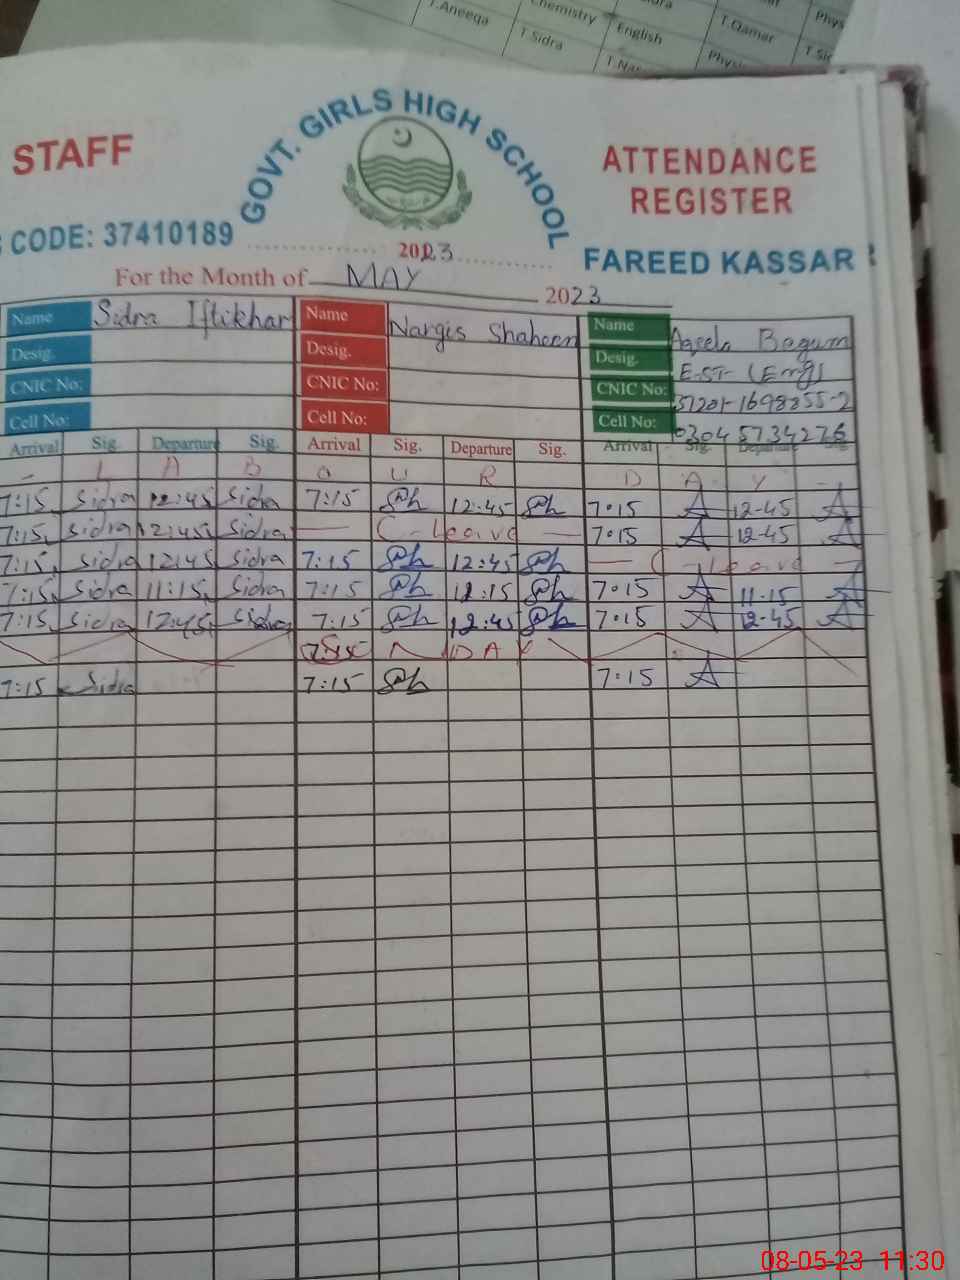 T.Aneeqa Chemistry T.Qamar Phys
T.Sidra English T.Sid
Physi
GOVT. GIRLS HIGH SCHOOL
STAFF ATTENDANCE
REGISTER
CODE: 37410189 2023 FAREED KASSAR
For the Month of MAY 2023
Name Sidra Iftikhar Name Nargis Shaheen Name Aqeela Begum
Desig. Desig. Desig. E.S.T (Eng)
CNIC No: CNIC No: CNIC No: 37201-1698855-2
Cell No: Cell No: Cell No: 0304 5734276
Arrival Sig. Departure Sig. Arrival Sig. Departure Sig. Arrival Sig. Departure Sig.
- L A B O U R D A Y -
7:15 Sidra 12:45 Sidra 7:15 Sh 12:45 Sh 7:15 A 12-45 A
7:15 Sidra 12:45 Sidra — C-leave — 7:15 A 12-45 A
7:15 Sidra 12:45 Sidra 7:15 Sh 12:45 Sh — C-leave —
7:15 Sidra 11:15 Sidra 7:15 Sh 11:15 Sh 7:15 A 11-15 A
7:15 Sidra 12:45 Sidra 7:15 Sh 12:45 Sh 7:15 A 12-45 A
N D A Y
7:15 Sidra 7:15 Sh 7:15 A
08-05-23 11:30